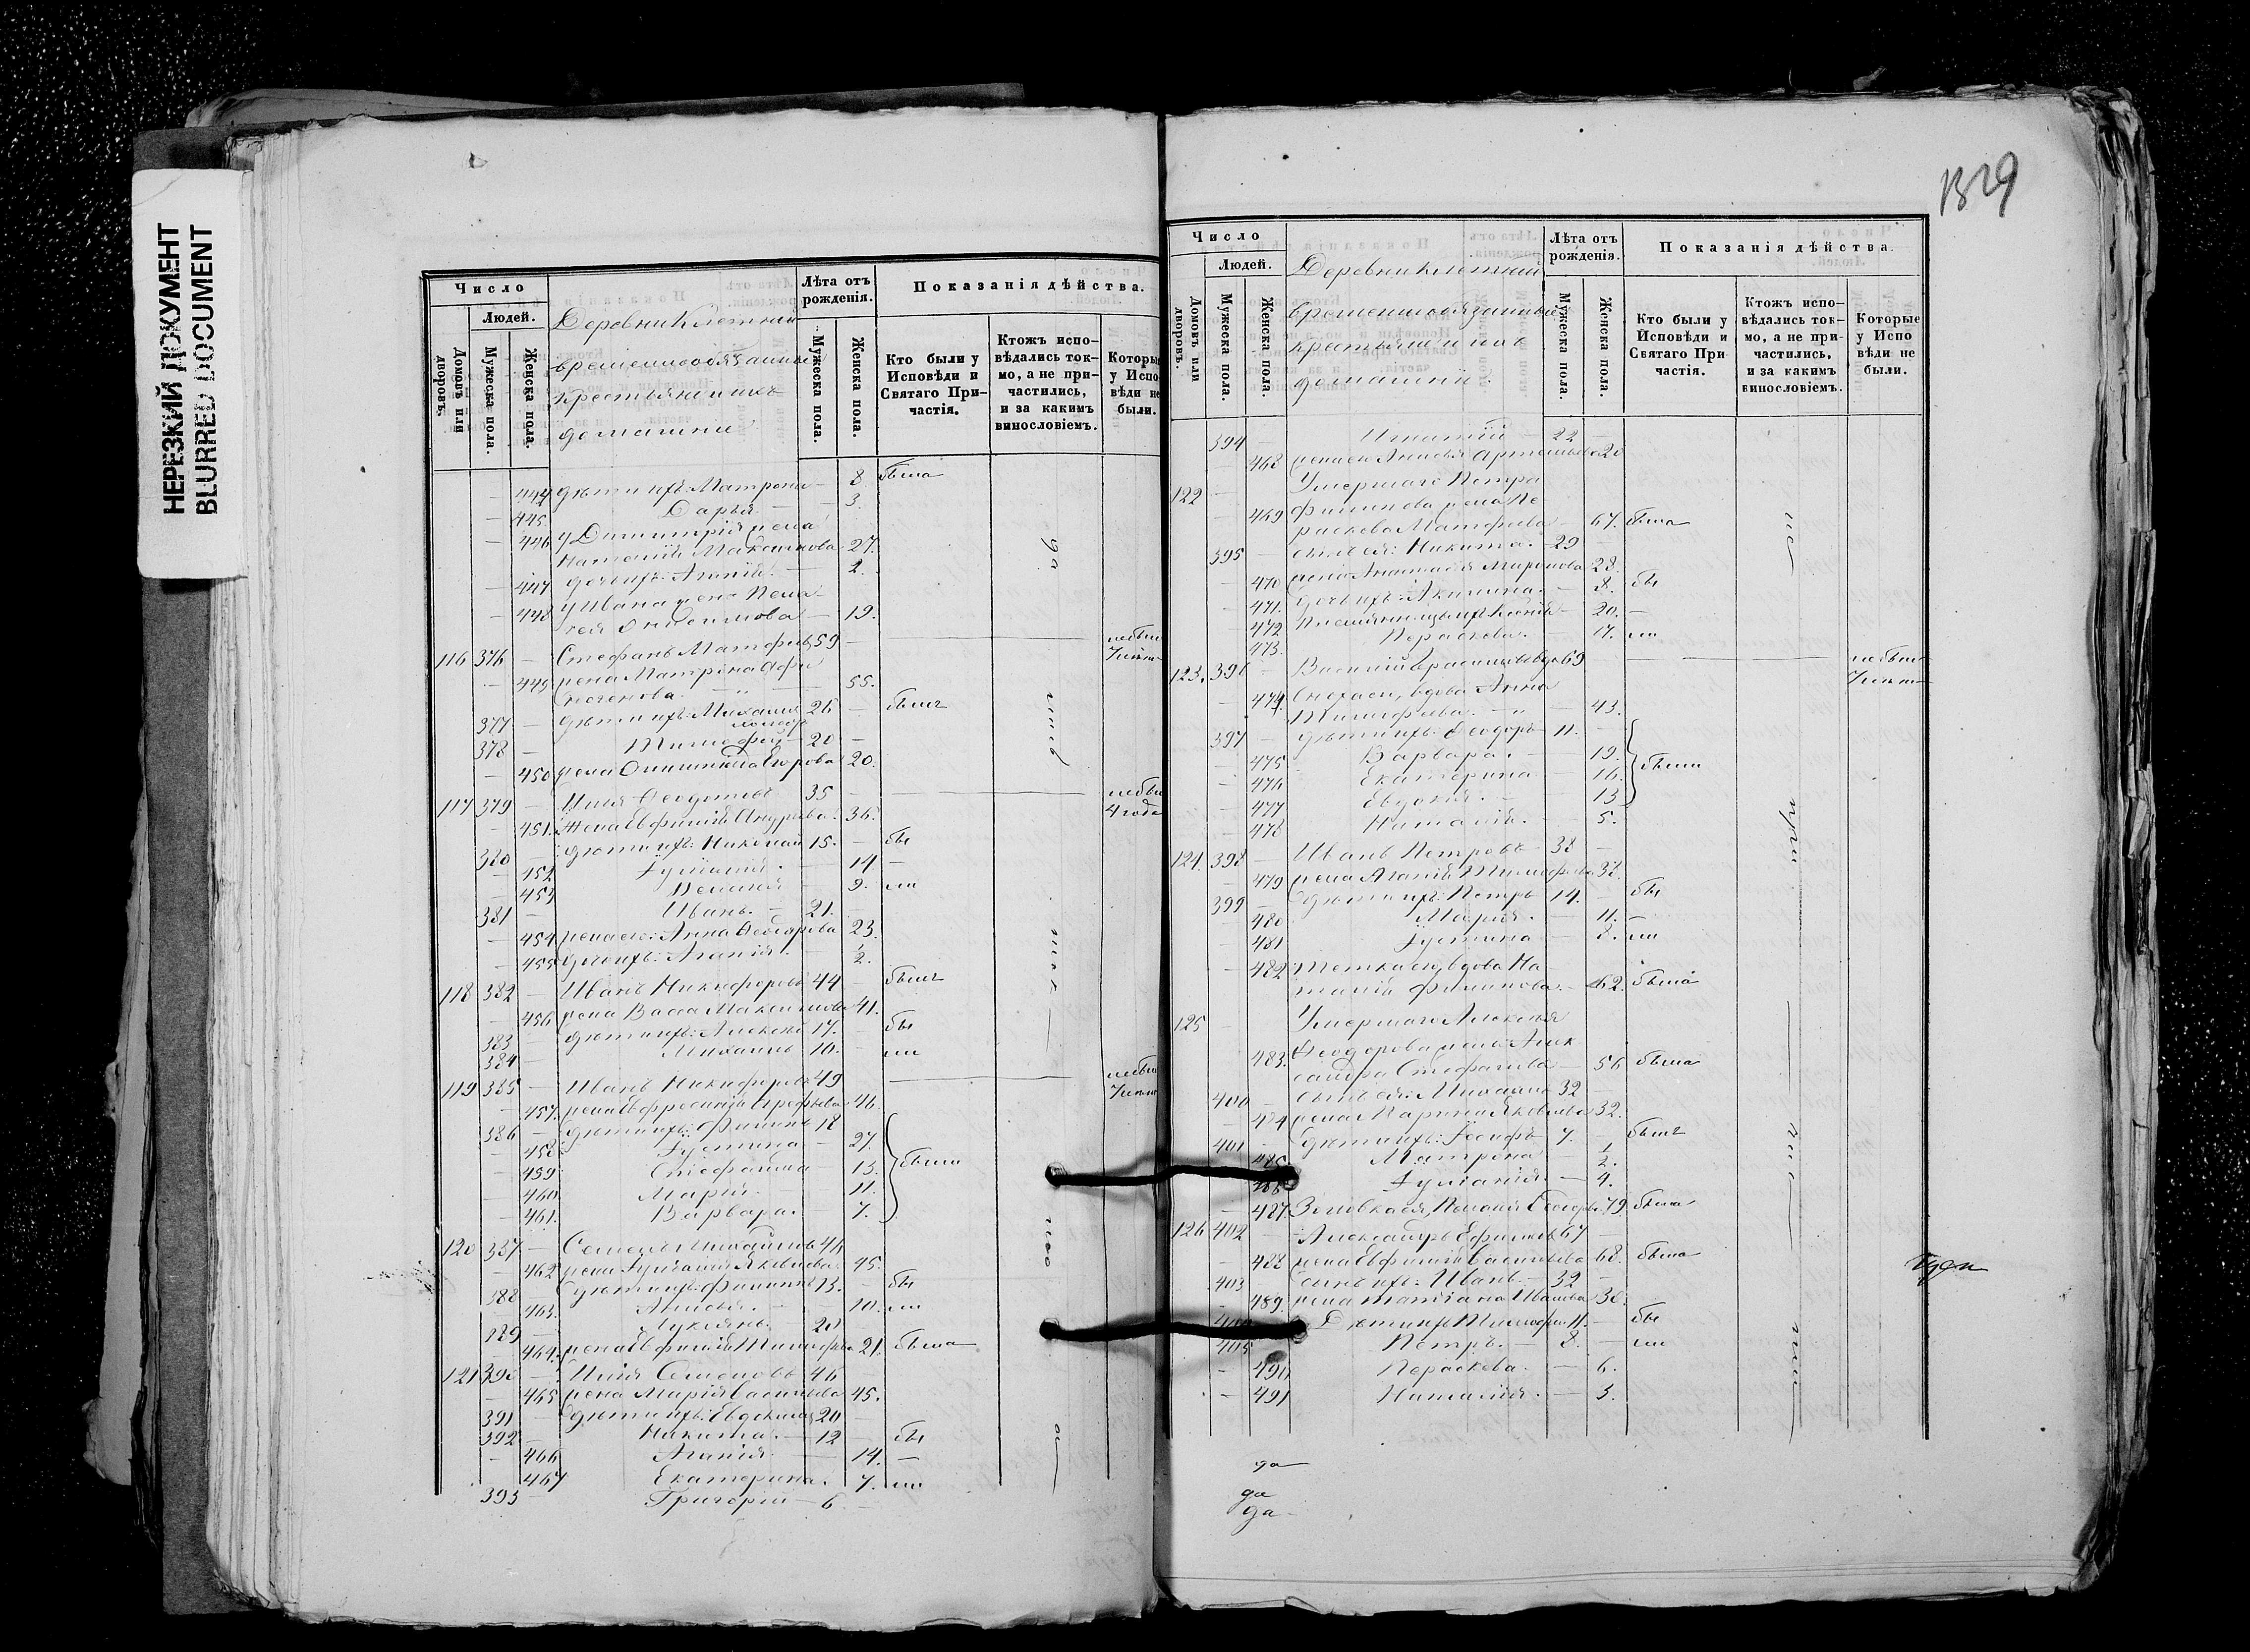 НЕРЕЗКИЙ ДОКУМЕНТ
BLURRED DOCUMENT
Число
Людей.
Домовъ или дворовъ.
Мужеска пола.
Женска пола.
Деревни
временнообязанные
крестьяне и ихъ
домашніи
Лѣта отъ рожденія.
Мужеска пола.
Женска пола.
Показанія дѣйства.
Кто были у Исповѣди и Святаго Причастія.
Ктожъ исповѣдались токмо, а не причастились, и за какимъ винословіемъ.
Которые у Исповѣди не были.
444 дѣти ихъ: Матрона 8. была
445 Дарья 3.
446 у Димитрія жена
Наталія Максимова 27.
447 дочь ихъ: Агапія 2.
448 у Ивана жена Пела-
гея Онисимова 19.
116 376 Стефанъ Матфеевъ 59 не былъ
449 жена Матрона
55.
377 дѣти ихъ: Михаилъ 26 былъ
378 Тимофей 20
450 жена Егорова 20.
117 379 Илія Ѳедотовъ 35 не былъ
4 года
451. жена Евфимія Андреева 36.
380 дѣти ихъ: Николай 15. бы
452 Іуліанія 14 —
453 Пелагія 9. ли
381 Иванъ 21.
454 жена его: Анна Ѳеодорова 23.
455 дочь ихъ: Агапія 2.
118 382 Иванъ Никифоровъ 44 былъ
456 жена Васса Максимова 41.
383 дѣти ихъ: Алексѣй 17. бы
384 Михаилъ 10. ли
119 385 Иванъ Никифоровъ 49 не былъ
457. жена Евфросинія 46
386 дѣти ихъ: Филиппъ 18
458 Іустина 27.
459 Стефанида 13. были
460 Марія 11.
461. Варвара 7.
120 387 Семенъ Михайловъ 46
462 жена Іуліанія Яковлева 45.
388 дѣти ихъ: Филиппъ 13. бы
463. Анисья 10. ли
389 Лукіянъ 20
464. жена Евфимія Тимофеева 21. была
121 390 Илія Семеновъ 46
465 жена Марія Васильева 45.
391 дѣти ихъ: Евдокимъ 20
392 Никита 12 бы
466 Агапія 14. —
467 Екатерина 7. ли
393 Григорій 6
1329
Число
Людей.
Домовъ или дворовъ.
Мужеска пола.
Женска пола.
Деревни
временнообязанные
крестьяне и ихъ
домашніи.
Лѣта отъ рожденія.
Мужеска пола.
Женска пола.
Показанія дѣйства.
Кто были у Исповѣди и Святаго Причастія.
Ктожъ исповѣдались токмо, а не причастились, и за какимъ винословіемъ.
Которые у Исповѣди не были.
394 Игнатій 22
468 жена Анисья Артемьева 20
122 Умершаго Петра
469 Филипова жена Па-
раскева Матфеева 67. была
395 сынъ ея: Никита 29
470 жена Анастасія Миронова 28.
471. дочь ихъ: Акилина 8. бы
472 племянницы ихъ Ксенія 20. —
473. Параскева 17. ли
123. 396 Василій 69 не былъ
474. Сноха его, вдова Анна
Тимофеева 43.
397 дѣти ихъ: Ѳеодоръ 11.
475 Варвара 19.
476 Екатерина 16. были
477 Евдокія 13
478 Наталія 5.
124. 398 Иванъ Петровъ 38
479 жена Агапія Тимофеева 38.
399 дѣти ихъ: Петръ 14. бы
480 Марія 11. —
481 Іустина 8. ли
482 тетка его, вдова На-
талія Филипова 62. была
125 Умершаго Алексѣя
483. Ѳеодорова жена Алек-
сандра Стефанова 56 была
400 сынъ ея: Михаилъ 32
484 жена Марина Яковлева 32.
401 дѣти ихъ: Іосифъ 7. былъ
485 Матрона
486 Іуліанія 4.
487. Золовка ея, Пелагія Ѳеодорова 79. была
126 402 Александръ Ефимовъ 67
488 жена Евфимія Васильева 68. была
403 Сынъ ихъ: Иванъ 32
489. жена Татіана Иванова 30.
404 Дѣти ихъ Тимофей 11. бы
405 Петръ 8. ли
490 Параскева 6.
491 Наталія 3.
да
да
да